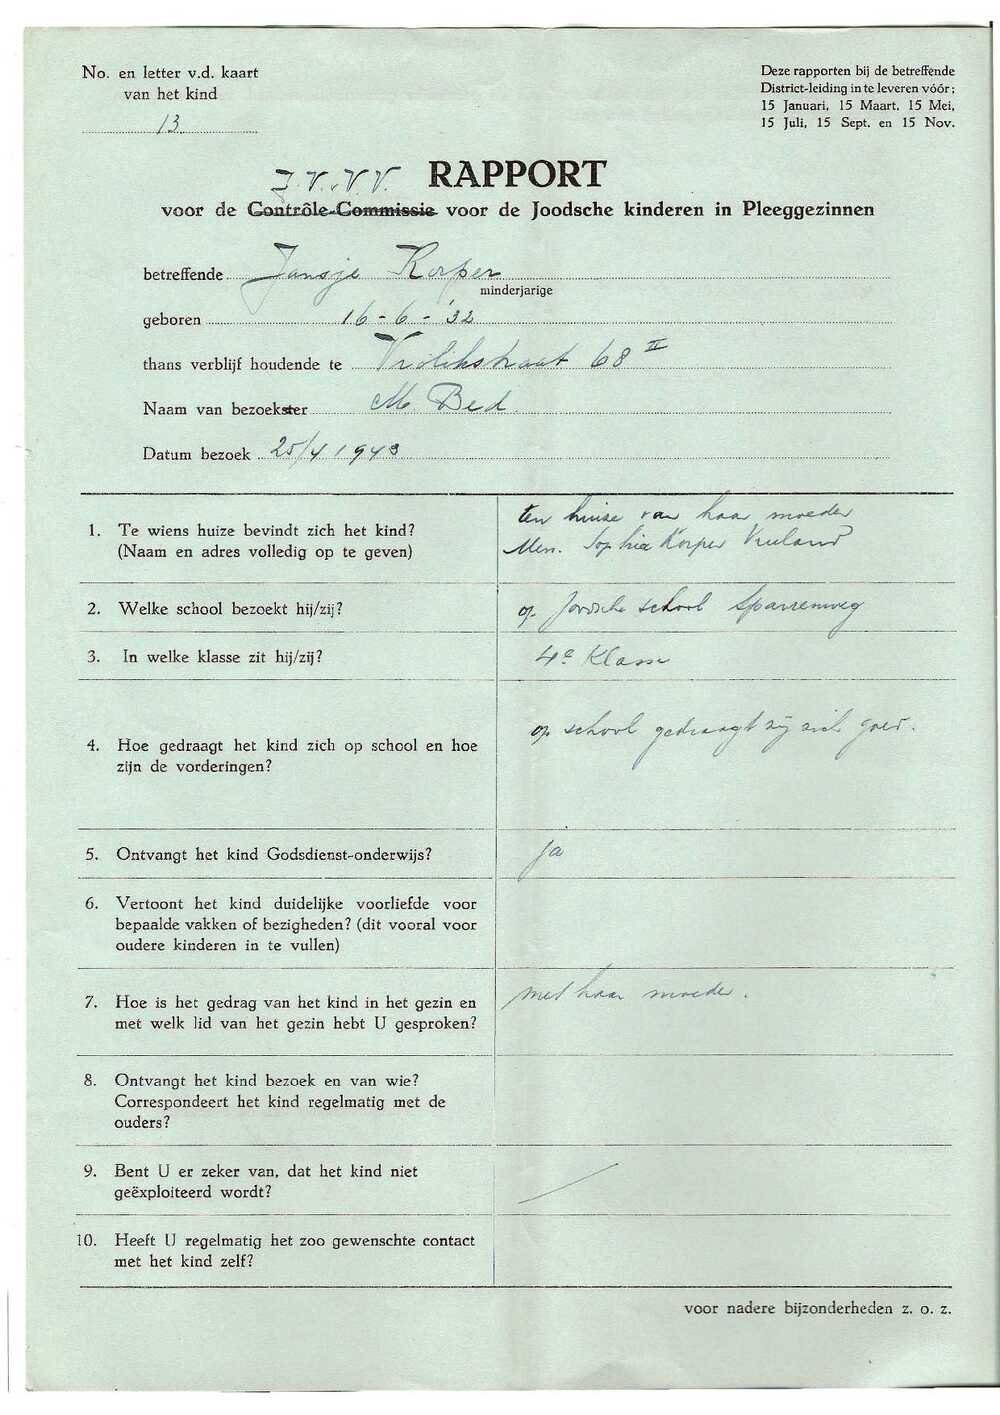 No. en letter v.d. kaart
van het kind
13
Deze rapporten bij de betreffende
District-leiding in te leveren vóór;
15 Januari, 15 Maart, 15 Mei,
15 Juli, 15 Sept. en 15 Nov.
J.V.V.V. RAPPORT
voor de Contrôle-Commissie voor de Joodsche kinderen in Pleeggezinnen
betreffende Jansje Korper
minderjarige
geboren 16-6-'32
thans verblijf houdende te Vrolikstraat 68 II
Naam van bezoekster M. Bed.
Datum bezoek 25/4 1943
1. Te wiens huize bevindt zich het kind?
(Naam en adres volledig op te geven)
ten huize van haar moeder
Mev. Sophia Korper Vreeland
2. Welke school bezoekt hij/zij?
op Joodsche school Sparrenweg
3. In welke klasse zit hij/zij?
4e Klasse
4. Hoe gedraagt het kind zich op school en hoe
zijn de vorderingen?
op school gedraagt zij zich goed.
5. Ontvangt het kind Godsdienst-onderwijs?
ja
6. Vertoont het kind duidelijke voorliefde voor
bepaalde vakken of bezigheden? (dit vooral voor
oudere kinderen in te vullen)
7. Hoe is het gedrag van het kind in het gezin en
met welk lid van het gezin hebt U gesproken?
met haar moeder.
8. Ontvangt het kind bezoek en van wie?
Correspondeert het kind regelmatig met de
ouders?
9. Bent U er zeker van, dat het kind niet
geëxploiteerd wordt?
10. Heeft U regelmatig het zoo gewenschte contact
met het kind zelf?
voor nadere bijzonderheden z. o. z.